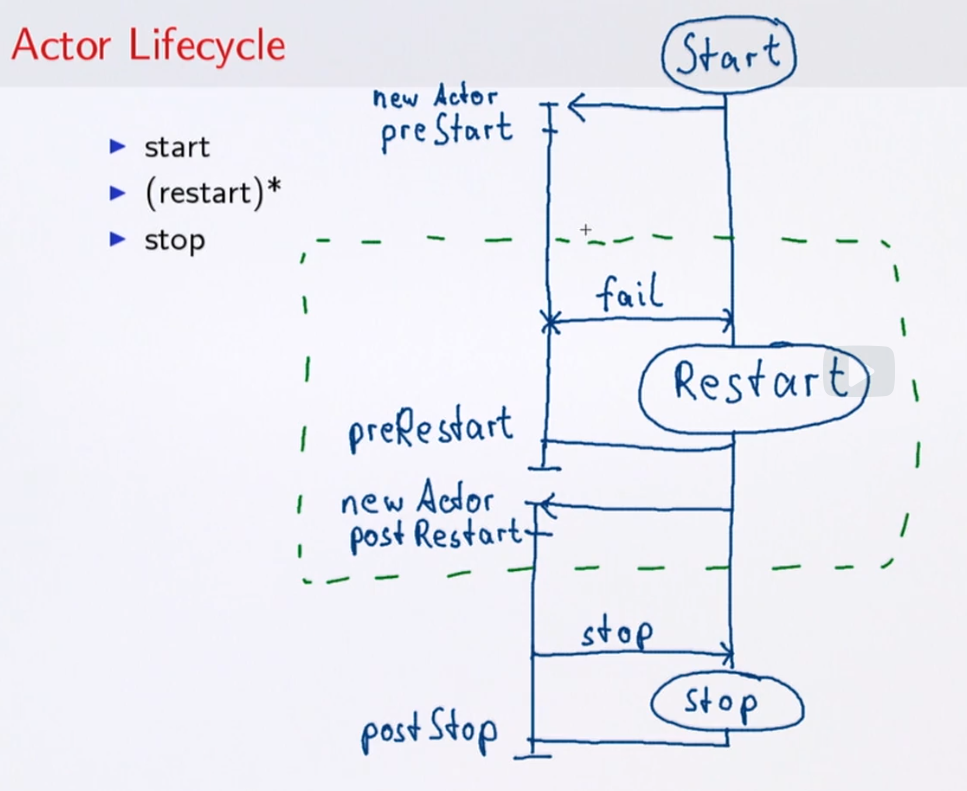 Actor Lifecycle
start
(restart)*
stop
Start
new Actor
preStart
fail
Restart
preRestart
new Actor
postRestart
stop
stop
postStop